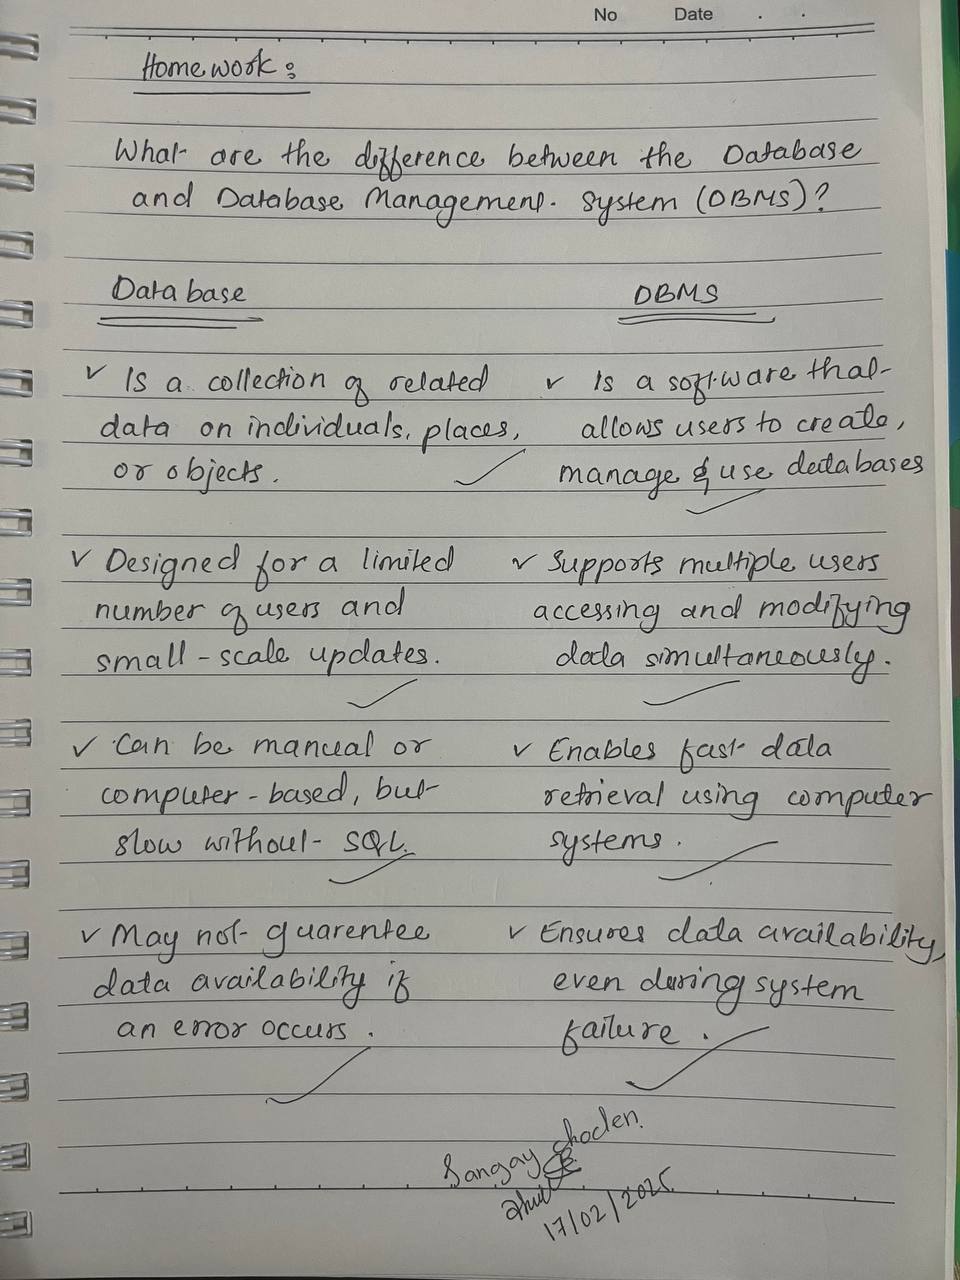 No Date . .
Homework:
What are the difference between the Database
and Database Management System (DBMS)?
Database DBMS
✓ Is a collection of related
data on individuals, places,
or objects.
✓ Is a software that
allows users to create,
manage & use databases
✓ Designed for a limited
number of users and
small-scale updates.
✓ Supports multiple users
accessing and modifying
data simultaneously.
✓ Can be manual or
computer-based, but
slow without SQL.
✓ Enables fast data
retrieval using computer
systems.
✓ May not guarentee
data availability if
an error occurs.
✓ Ensures data availability,
even during system
failure.
Sangay Choden.
17/02/2025